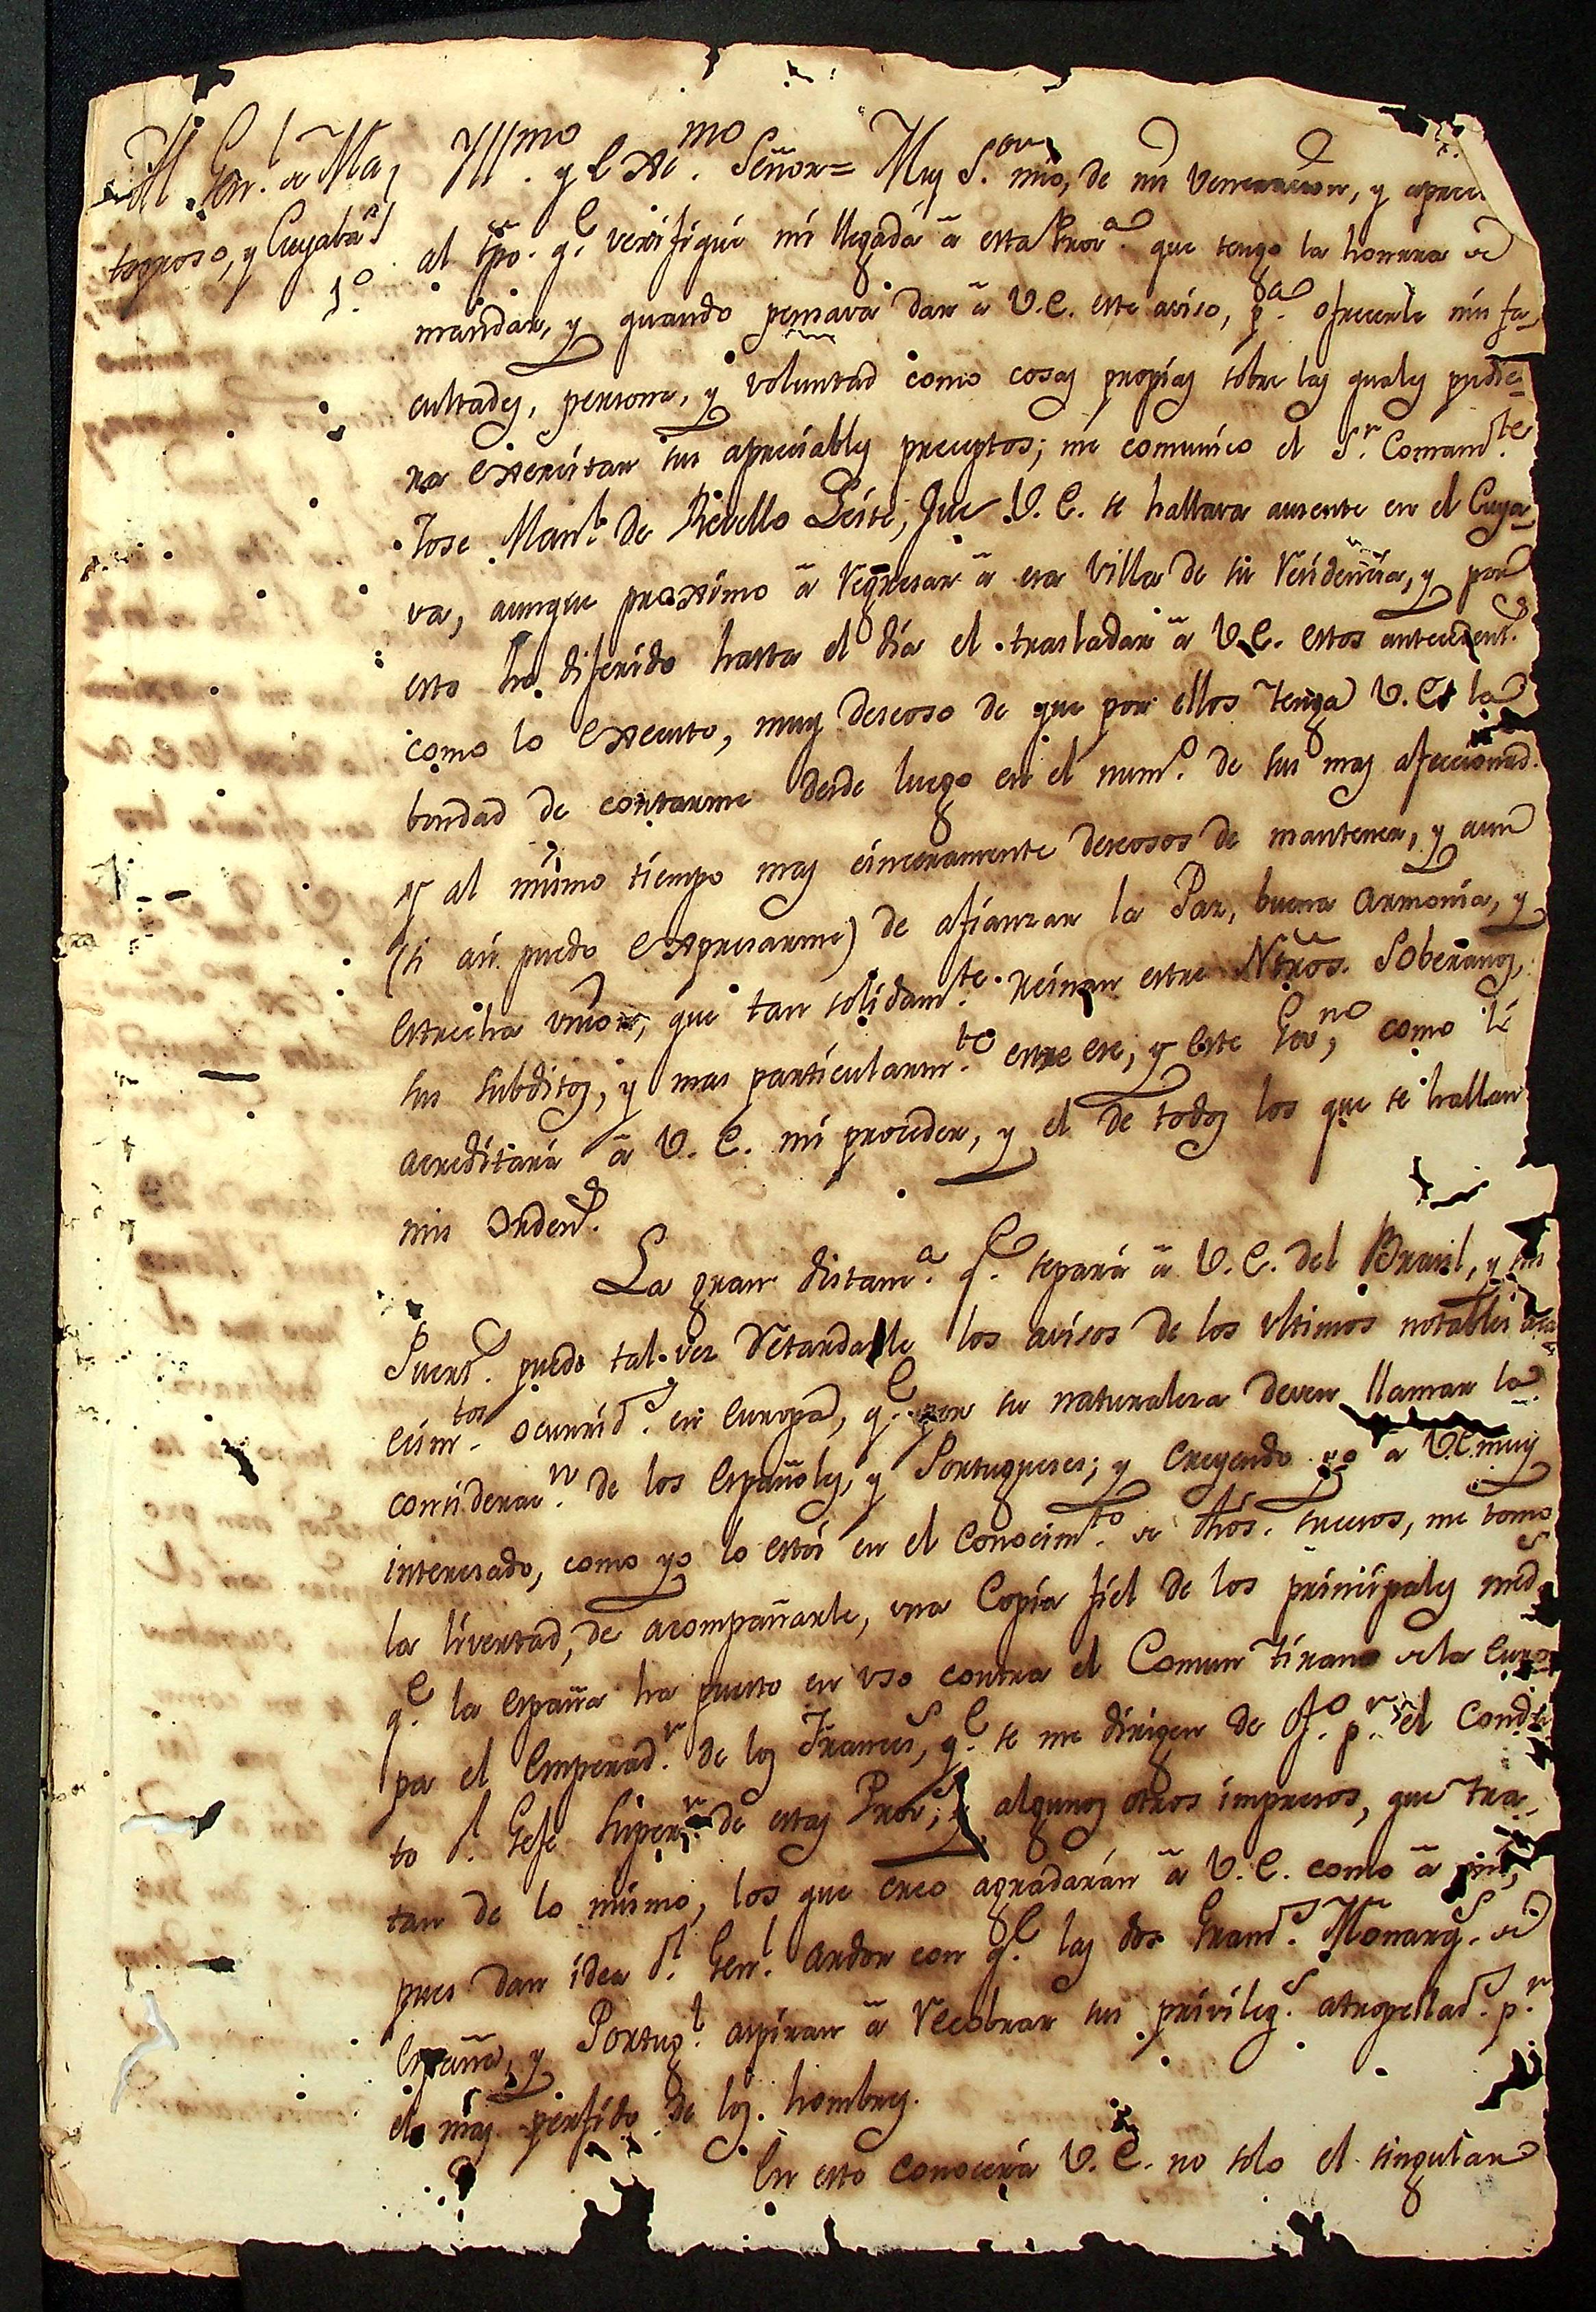 Al Gen.l de Ma,
togroso, y Cuyabá.
1.º
Yll.mo y Exc.mo Señor = Muy S.or mio, de mi veneracion, y aprecio
al tpo. q.e verifiqué mi llegada â esta Prov.a que tengo la honrra de
mandar, y quando pensava dar â V.E. este aviso, p.a ofrecerle mis fa,
cultades, persona, y voluntad como cosas propias sobre las quales pudie-
ra exercitar sus apreciables preceptos; me comunico el S.r Comand.te
Jose Man.l de Rebello Leite, que V.E. se hallava ausente en el Cuya-
va, aunque proximo â regresar â esa Villa de su residencia, y por
esto he diferido hasta el dia el trasladar â V.E. estos antecedent.s
como lo executo, muy deseoso de que por ellos tenga V.E. la
bondad de contarme desde luego en el num.o de sus mas afeccionad.s
y al mismo tiempo mas sinceramente deseosos de mantener, y aun
(si asi puedo expresarme) de afianzar la Paz, buena armonia, y
estrecha union, que tan solidam.te reinan entre Ntros. Soberanos,
sus subditos, y mas particularm.te entre ese, y este Gov.no, como le
acreditará â V.E. mi proceder, y el de todos los que se hallan
mis Orden.s
La gran distanc.a q.e separa â V.E. del Brasil, y sus
Puert.s puede tal vez retardarle los avisos de los ultimos notables aca-
ecim.tos ocurrid.s en Europa, q.e por su naturaleza deven llamar la
considerac.n de los Españoles, y Portugueses; y creyendo yo a V.E. muy
interesado, como yo lo estoi en el conocim.to de dhos. sucesos, me tomo
la livertad, de acompañarle, una Copia fiel de los principales med.s
q.e la España ha puesto en uso contra el Comun tirano de la Euro-
pa el Emperad.r de los Frances.s, q.e se me dirigen de of.o p.r el Condu-
to d.l Gefe Super.r de estas Prov.s, y algunos otros impresos, que tra-
tan de lo mismo, los que creo agradarán â V.E. como â mi,
pues dan idea d.l Gen.l ardor con q.e las dos Grand.s Monarq.s de
España, y Portug.l aspiran â recobrar sus privileg.s atropellad.s p.r
el mas perfido de los hombres.
En esto conocerá V.E. no solo el singular